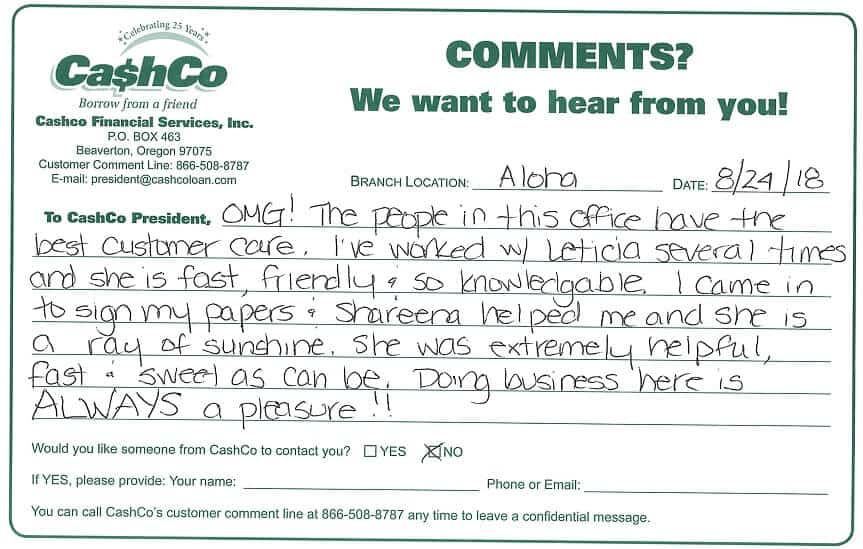 Celebrating 25 Years
Ca$hCo
Borrow from a friend
Cashco Financial Services, Inc.
P.O. BOX 463
Beaverton, Oregon 97075
Customer Comment Line: 866-508-8787
E-mail: president@cashcoloan.com
COMMENTS?
We want to hear from you!
BRANCH LOCATION: Aloha DATE: 8/24/18
To CashCo President, OMG! The people in this office have the
best customer care. I've worked w/ Leticia several times
and she is fast, friendly & so knowledgable. I came in
to sign my papers & Shareena helped me and she is
a ray of sunshine. She was extremely helpful,
fast & sweet as can be. Doing business here is
ALWAYS a pleasure!!
Would you like someone from CashCo to contact you? ☐ YES ☒ NO
If YES, please provide: Your name: Phone or Email:
You can call CashCo's customer comment line at 866-508-8787 any time to leave a confidential message.